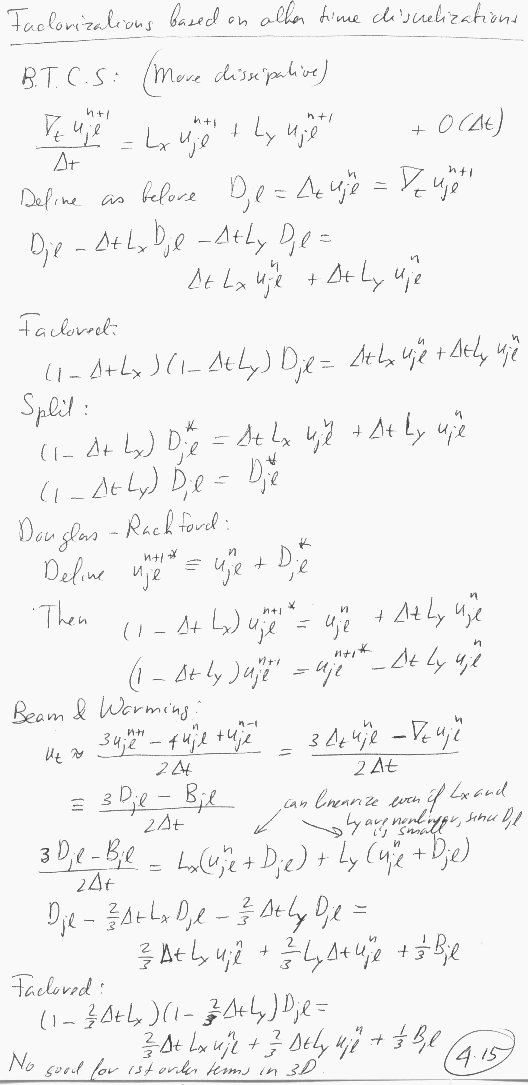 Factorizations based on other time discretizations
B.T.C.S: (More dissipative)
∇_t u_{jl}^{n+1} / Δt = L_x u_{jl}^{n+1} + L_y u_{jl}^{n+1} + O(Δt)
Define as before D_{jl} = Δ_t u_{jl}^n = ∇_t u_{jl}^{n+1}
D_{jl} - Δt L_x D_{jl} - Δt L_y D_{jl} =
Δt L_x u_{jl}^n + Δt L_y u_{jl}^n
Factored:
(1 - Δt L_x)(1 - Δt L_y) D_{jl} = Δt L_x u_{jl}^n + Δt L_y u_{jl}^n
Split:
(1 - Δt L_x) D_{jl}^* = Δt L_x u_{jl}^n + Δt L_y u_{jl}^n
(1 - Δt L_y) D_{jl} = D_{jl}^*
Douglas - Rachford:
Define u_{jl}^{n+1*} ≡ u_{jl}^n + D_{jl}^*
Then (1 - Δt L_x) u_{jl}^{n+1*} = u_{jl}^n + Δt L_y u_{jl}^n
(1 - Δt L_y) u_{jl}^{n+1} = u_{jl}^{n+1*} - Δt L_y u_{jl}^n
Beam & Warming:
u_t ≈ (3u_{jl}^{n+1} - 4u_{jl}^n + u_{jl}^{n-1}) / 2Δt = (3Δ_t u_{jl}^n - ∇_t u_{jl}^n) / 2Δt
≡ (3D_{jl} - B_{jl}) / 2Δt
can linearize even if L_x and
L_y are nonlinear, since D_{jl}
is small
(3D_{jl} - B_{jl}) / 2Δt = L_x(u_{jl}^n + D_{jl}) + L_y(u_{jl}^n + D_{jl})
D_{jl} - 2/3 Δt L_x D_{jl} - 2/3 Δt L_y D_{jl} =
2/3 Δt L_x u_{jl}^n + 2/3 L_y Δt u_{jl}^n + 1/3 B_{jl}
Factored:
(1 - 2/3 Δt L_x)(1 - 2/3 Δt L_y) D_{jl} =
2/3 Δt L_x u_{jl}^n + 2/3 Δt L_y u_{jl}^n + 1/3 B_{jl}
No good for 1st order terms in 3D
4.15